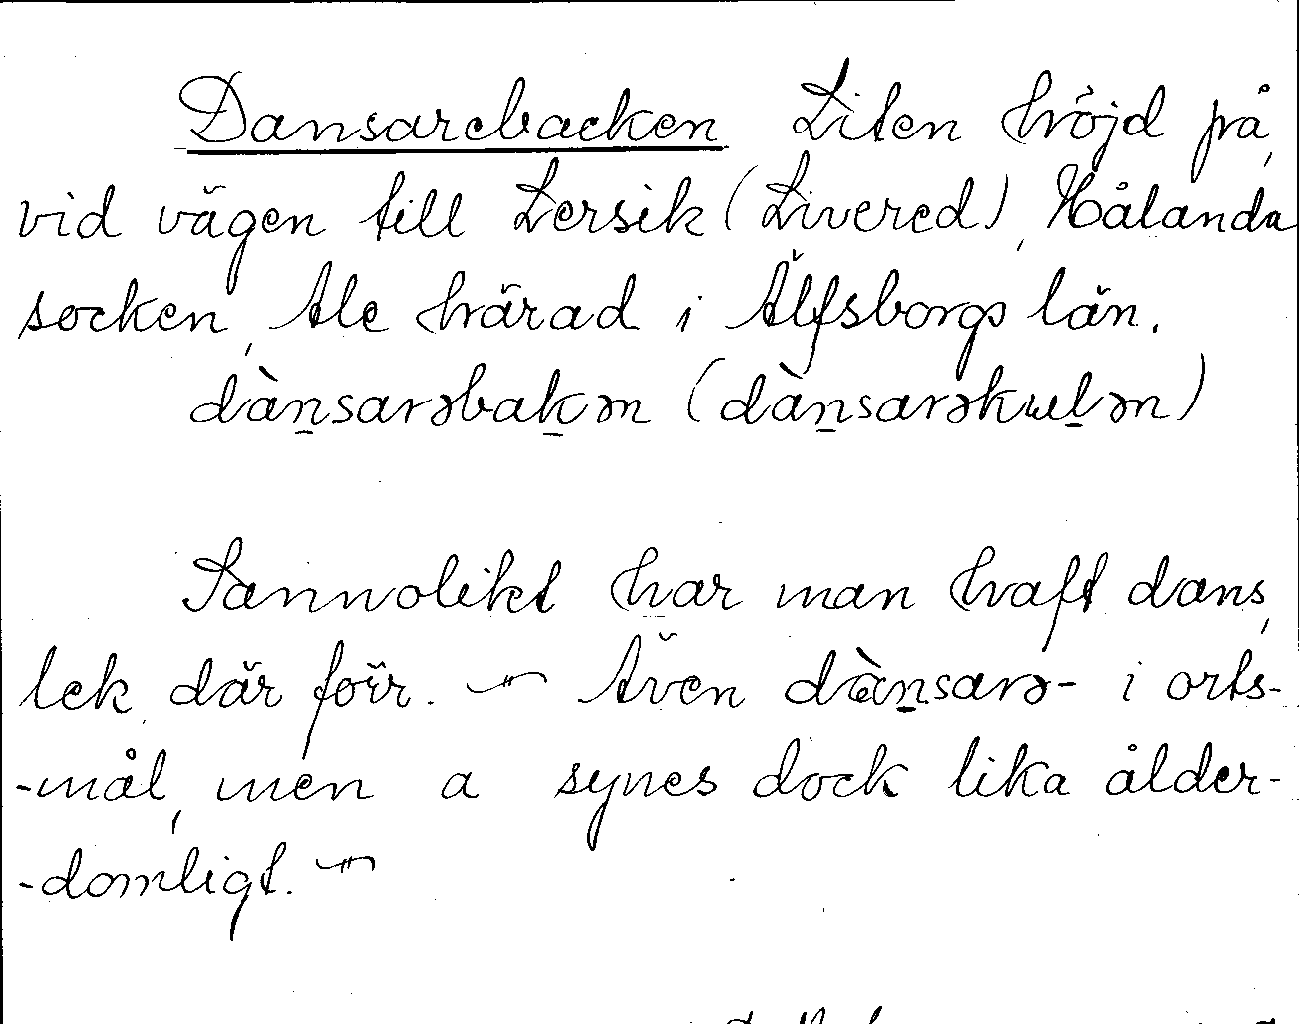 Dansarebacken Liten höjd på,
vid vägen till Lersik (Livered), Hålanda
socken, Ale härad i Älfsborgs län.
dàn̲sarəbak̲ən (dàn̲sarəkul̲ən)
Sannolikt har man haft dans,
lek, där förr. — Även dæ̀n̲sarə- i orts-
-mål, men a synes dock lika ålder-
-domligt. —